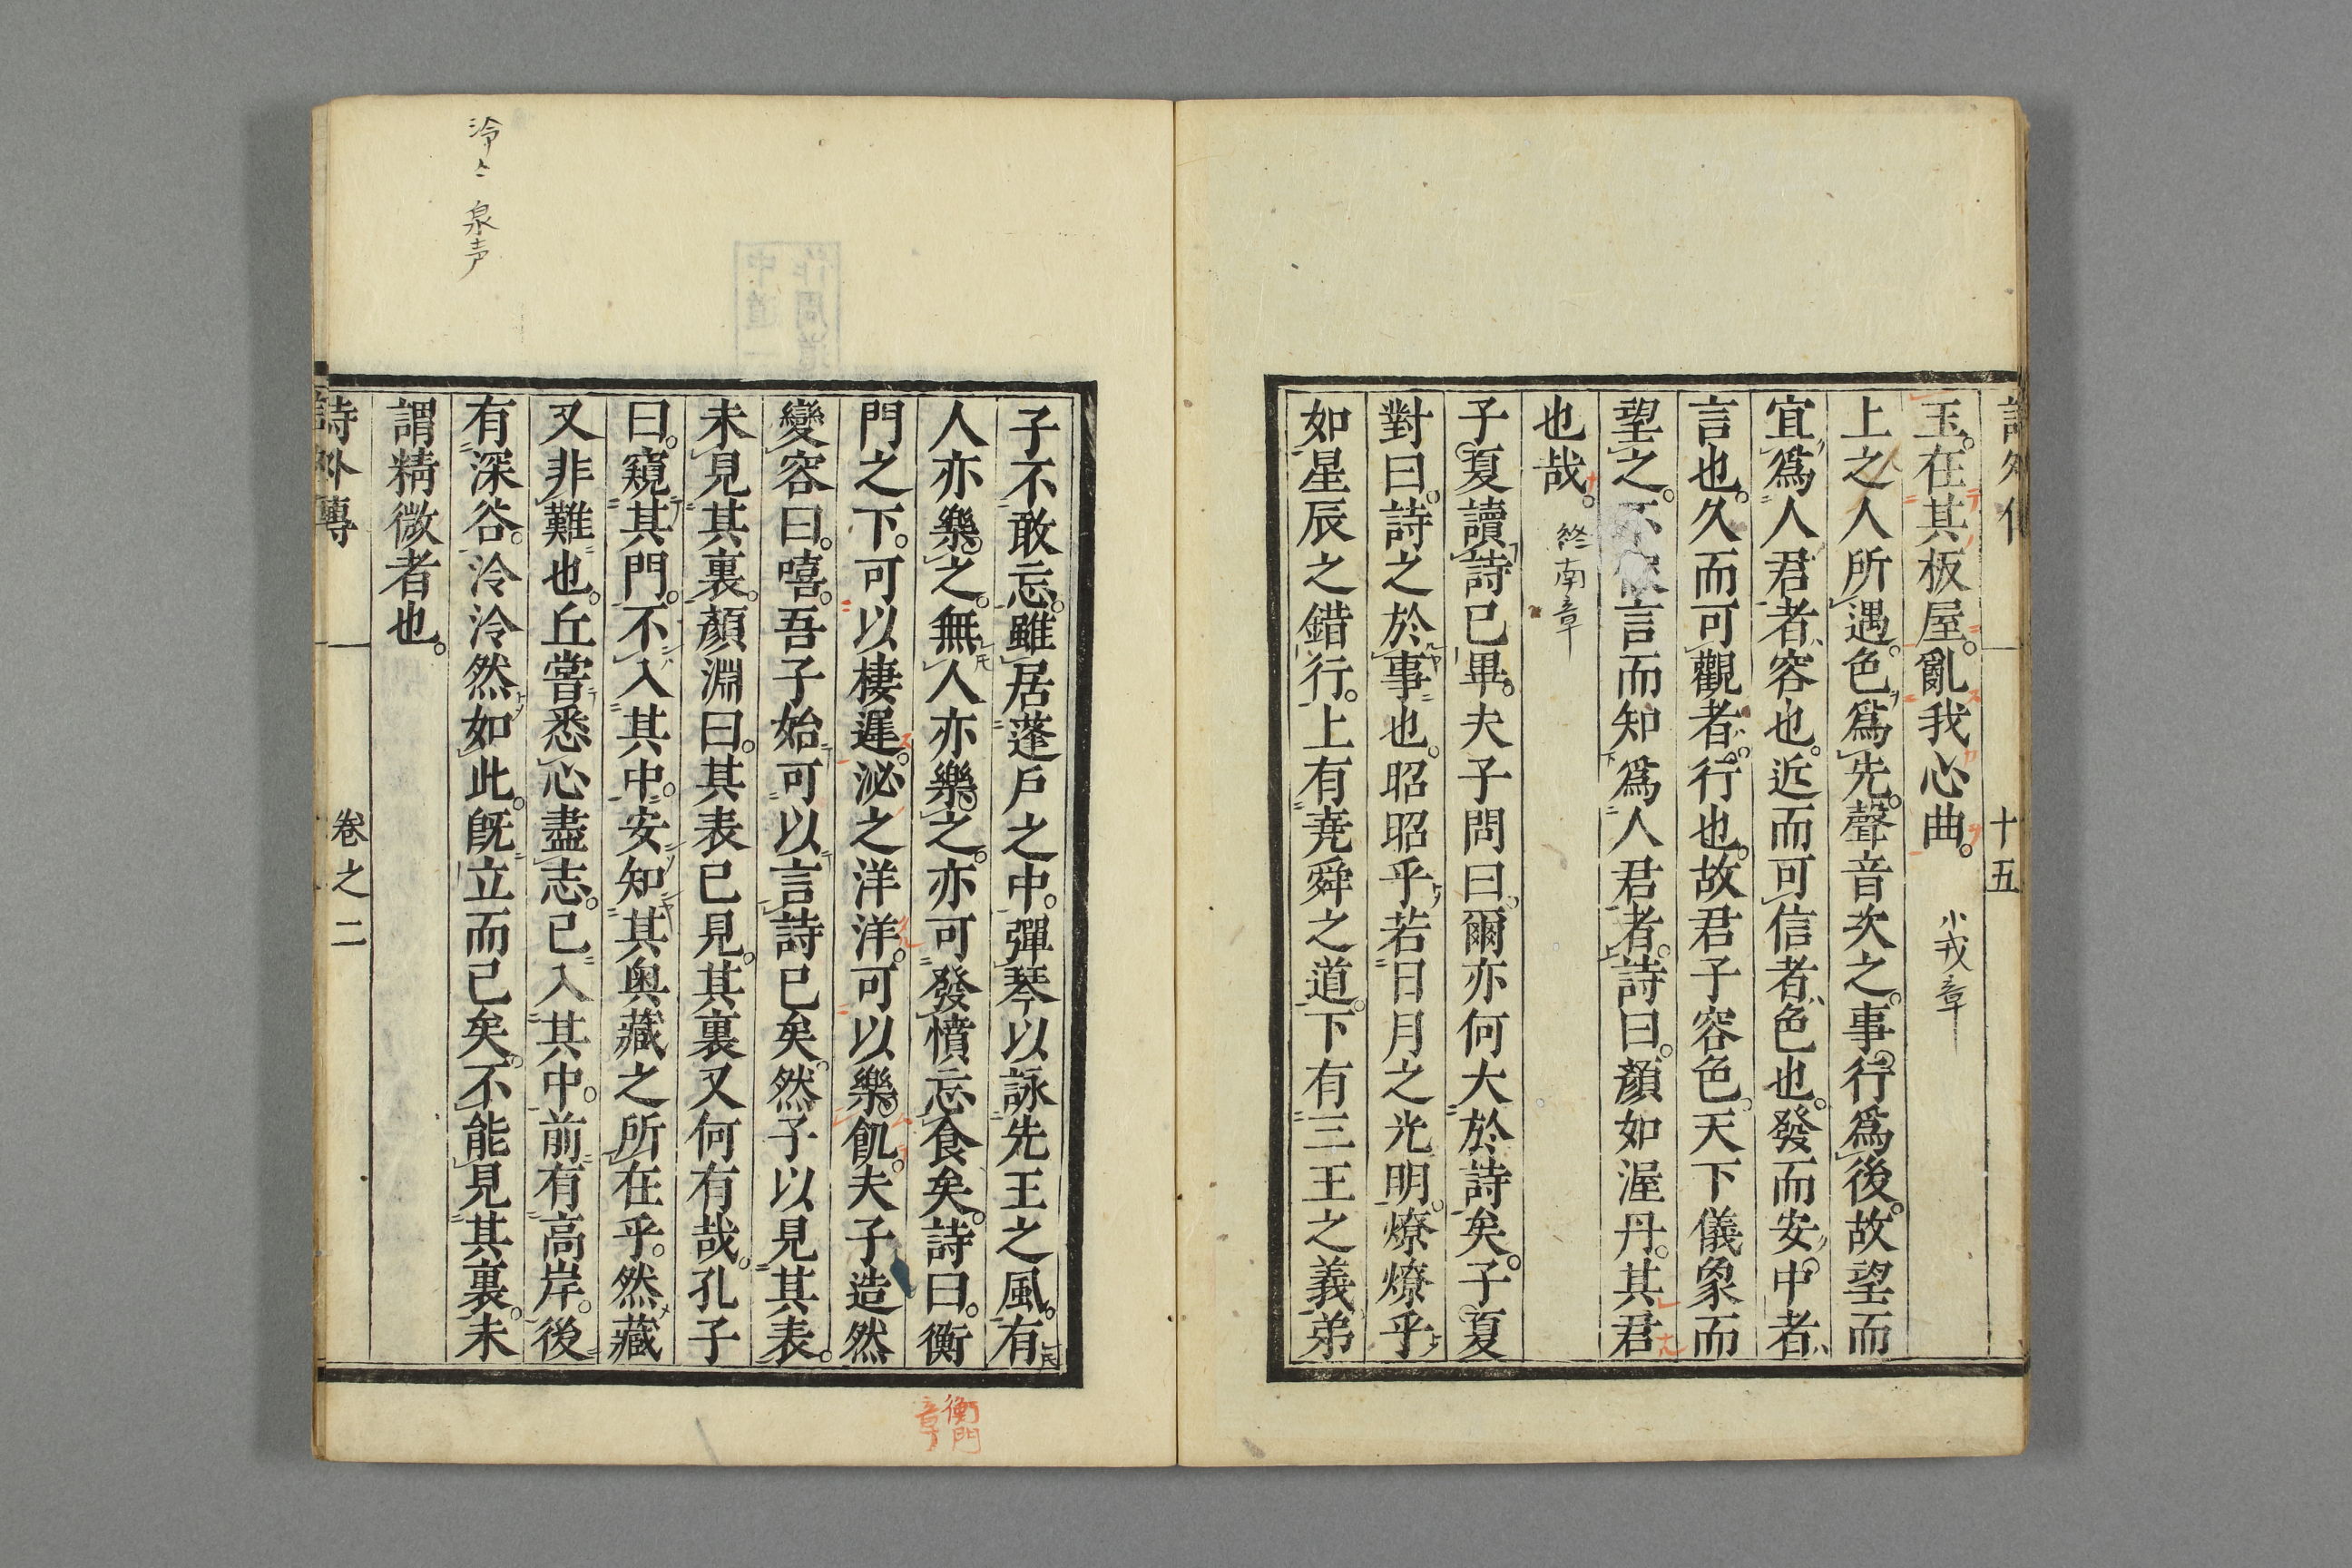 十五
玉。在其板屋。亂我心曲。小戎章
上之人所遇。色爲先。聲音次之。事。行爲後。故望而
宜爲人君者、容也。近而可信者、色也。發而安。中者、
言也。久而可觀者、行也。故君子容色。天下儀象而
望之。不假言而知爲人君者。詩曰。顏如渥丹。其君
也哉。終南章
子夏讀詩已畢。夫子問曰。爾亦何大於詩矣。子夏
對曰。詩之於事也。昭昭乎若日月之光明。燎燎乎
如星辰之錯行。上有堯舜之道。下有三王之義弟
子不敢忘。雖居蓬戶之中。彈琴以詠先王之風。有
人亦樂之。無人亦樂之。亦可發憤忘食矣。詩曰。衡
門之下。可以棲遲。泌之洋洋。可以樂飢。夫子造然
變容曰。嘻。吾子始可以言詩已矣。然子以見其表。
未見其裏。顏淵曰。其表已見。其裏又何有哉。孔子
曰。窺其門。不入其中。安知其奧藏之所在乎。然藏
又非難也。丘嘗悉心盡志。已入其中。前有高岸。後
有深谷。泠泠然如此。旣立而已矣。不能見其裏。未
謂精微者也。
詩外傳 卷之二
泠〻 泉声
衡門章